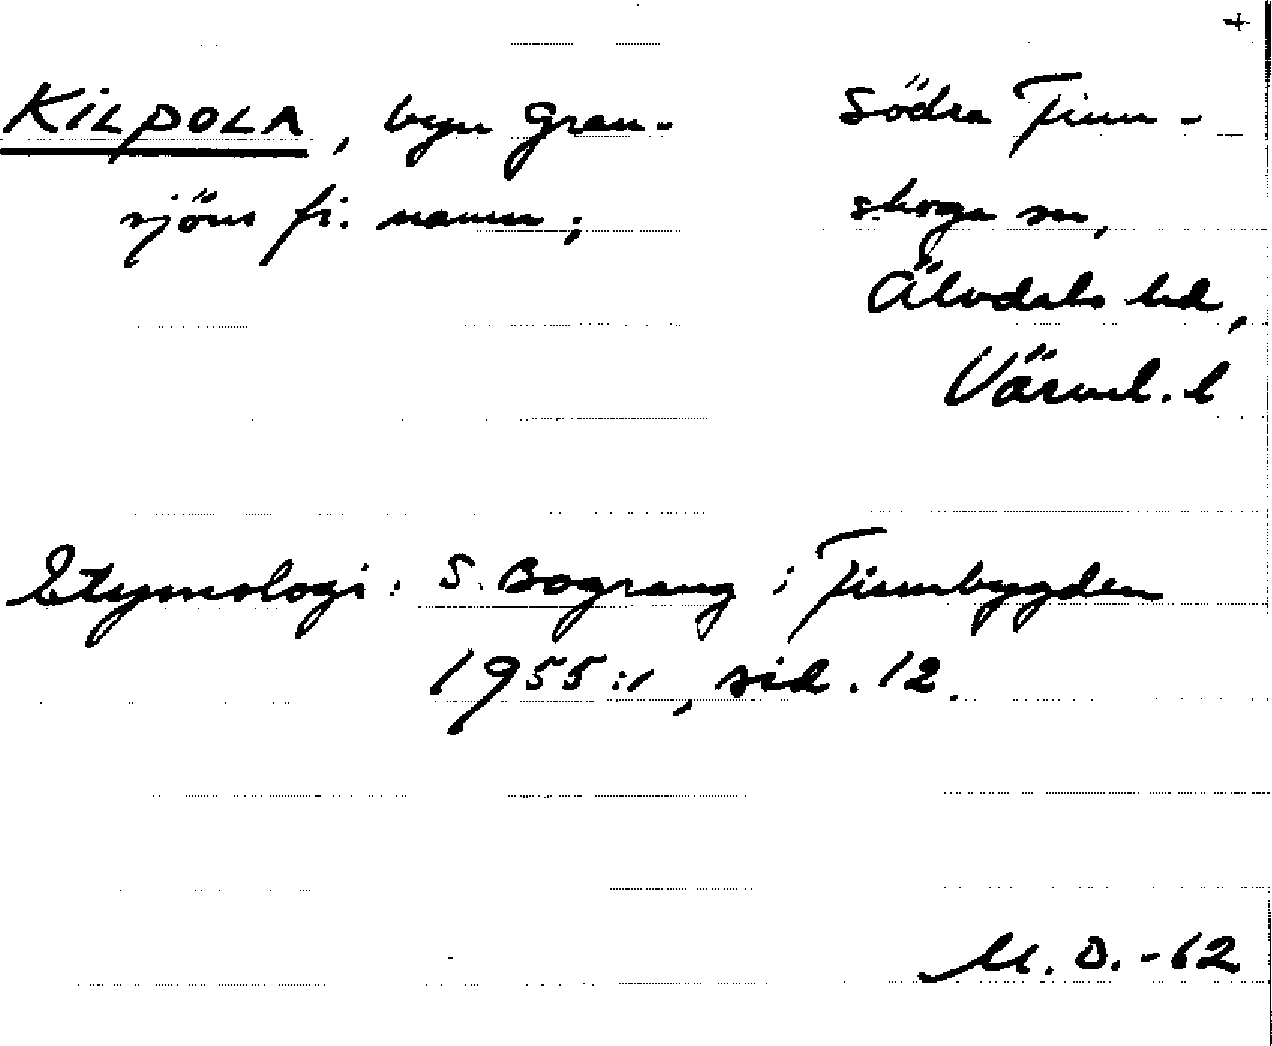 +
KILPOLA, byn Gran-
sjöns fi. namn;
Södra Finn-
skoga sn,
Älvdals hd,
Värml. l
Etymologi: S. Bograng i Finnbygden
1955:1, sid. 12.
M. D. -62